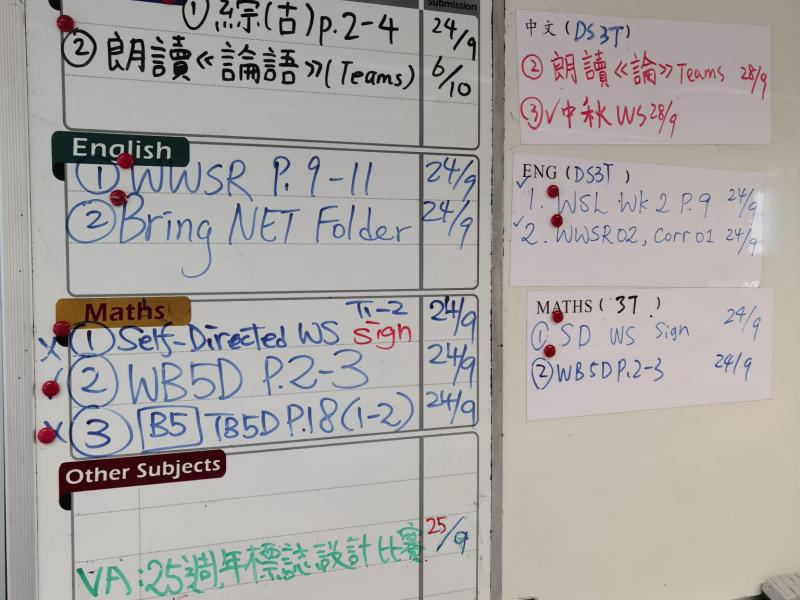 Submission
① 綜(古) p.2-4 24/9
② 朗讀《論語》(Teams) 6/10
English
① WWSR P. 9-11 24/9
② Bring NET Folder 24/9
Maths
① Self-Directed WS Ti-2 sign 24/9
② WB5D P.2-3 24/9
③ B5 TB5D P.18(1-2) 24/9
Other Subjects
VA: 25週年標誌設計比賽 25/9
中文 (DS3T)
② 朗讀《論》Teams 28/9
③ √中秋 WS 28/9
ENG (DS3T)
√ 1. WSL Wk 2 P. 9 24/9
√ 2. WWSR02, Corr 01 24/9
MATHS (3T.)
① SD WS Sign 24/9
② WB5D P.2-3 24/9